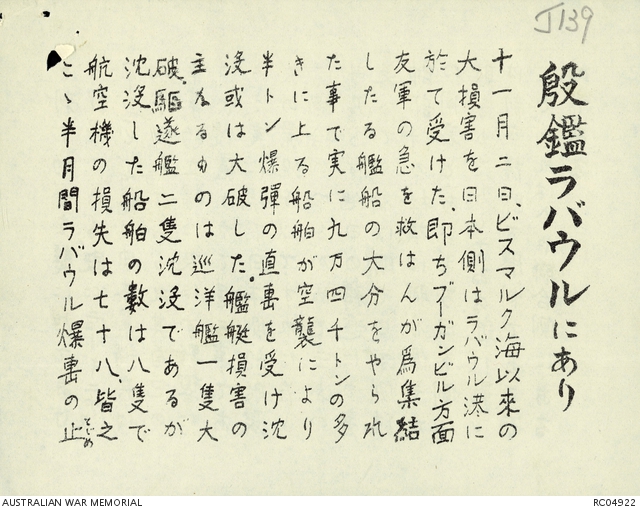 J139
殷鑑ラバウルにあり
十一月二日、ビスマルク海以来の
大損害を日本側はラバウル港に
於て受けた、即ちブーガンビル方面
友軍の急を救はんが為集結
したる艦船の大分をやられ
た事で実に九万四千トンの多
きに上る船舶が空襲により
半トン爆弾の直撃を受け沈
没或は大破した。艦艇損害の
主なるものは巡洋艦一隻大
破、駆逐艦二隻沈没であるが
沈没した船舶の数は八隻で
航空機の損失は七十八、皆之
こゝ半月間ラバウル爆撃の止
とゞめ
AUSTRALIAN WAR MEMORIAL
RC04922